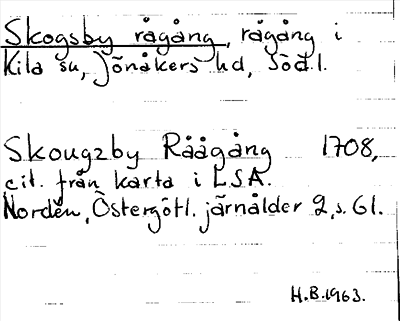 Skogsby rågång, rågång i
Kila sn, Jönåkers hd, Söd.l.
Skougzby Råågång 1708,
cit. från karta i LSA.
Nordén, Östergötl. järnålder 2, s. 61.
H.B. 1963.